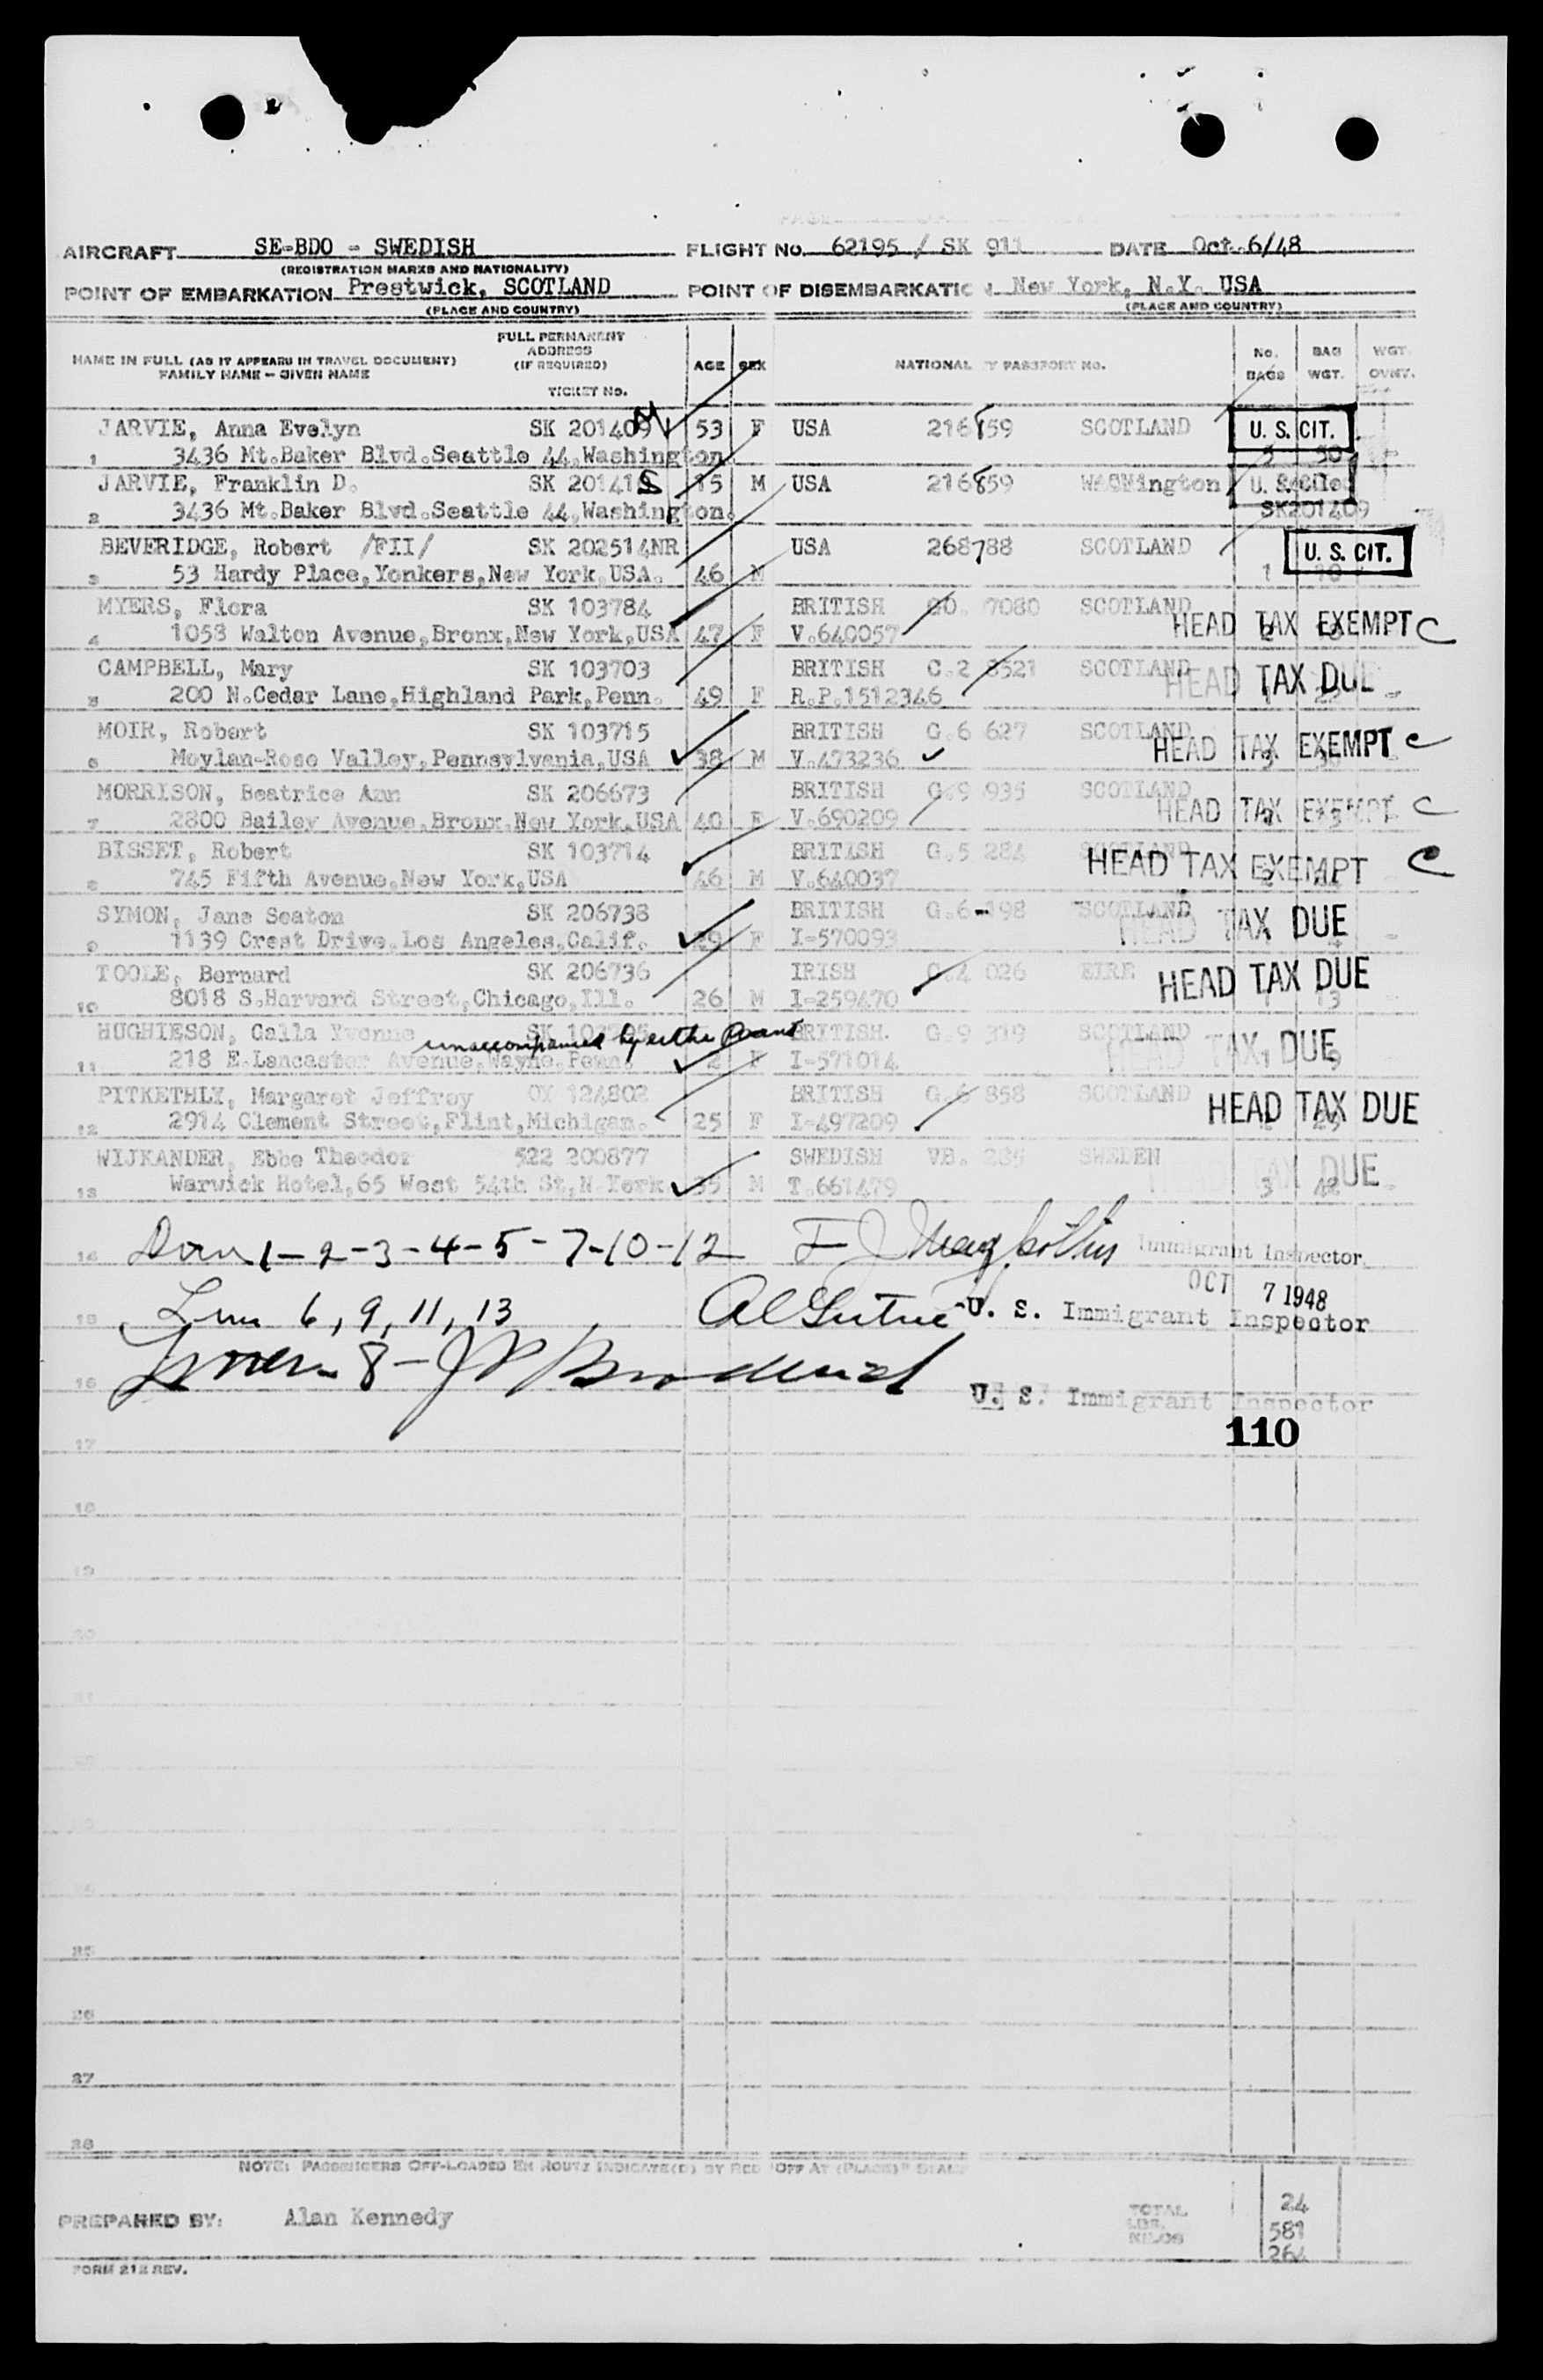 AIRCRAFT SE-BDO - SWEDISH FLIGHT No. 62195 / SK 911 DATE Oct. 6/48
(REGISTRATION MARKS AND NATIONALITY)
POINT OF EMBARKATION Prestwick, SCOTLAND POINT OF DISEMBARKATION New York, N.Y. USA
(PLACE AND COUNTRY) (PLACE AND COUNTRY)
NAME IN FULL (AS IT APPEARS IN TRAVEL DOCUMENT)
FAMILY NAME - GIVEN NAME
FULL PERMANENT
ADDRESS
(IF REQUIRED)
TICKET NO.
AGE SEX NATIONAL Y PASSPORT NO. No. BAGS BAG WGT. WGT. OVWT.
JARVIE, Anna Evelyn SK 201409 53 F USA 216859 SCOTLAND U. S. CIT.
1 3436 Mt.Baker Blvd.Seattle 44,Washington. 3 50
JARVIE, Franklin D. SK 201410 15 M USA 216859 WASHington U. S. Cit.
2 3436 Mt.Baker Blvd.Seattle 44,Washington. SK201409
BEVERIDGE, Robert /FII/ SK 202514NR USA 268788 SCOTLAND U. S. CIT.
3 53 Hardy Place,Yonkers,New York,USA. 46 M 1
MYERS, Flora SK 103784 BRITISH 7080 SCOTLAND
4 1058 Walton Avenue,Bronx,New York,USA 47 F V.640057 HEAD TAX EXEMPT C
CAMPBELL, Mary SK 103703 BRITISH C.2 8521 SCOTLAND
5 200 N.Cedar Lane,Highland Park,Penn. 49 F R.P.1512346 HEAD TAX DUE
MOIR, Robert SK 103715 BRITISH G.6 627 SCOTLAND
6 Moylan-Rose Valley,Pennsylvania,USA 38 M V.473236 HEAD TAX EXEMPT C
MORRISON, Beatrice Ann SK 206673 BRITISH G.9 935 SCOTLAND
7 2800 Bailey Avenue,Bronx,New York,USA 40 F V.690209 HEAD TAX EXEMPT C
BISSET, Robert SK 103714 BRITISH G.5 284 SCOTLAND
8 745 Fifth Avenue,New York,USA 46 M V.640037 HEAD TAX EXEMPT C
SYMON, Jane Seaton SK 206738 BRITISH G.6 198 SCOTLAND
9 1139 Crest Drive,Los Angeles,Calif. 29 F I-570093 HEAD TAX DUE
TOOLE, Bernard SK 206736 IRISH 026 EIRE
10 8018 S.Harvard Street,Chicago,Ill. 26 M I-259470 HEAD TAX DUE 13
HUGHIESON, Calla Yvonne unaccompanied by either Parent BRITISH. G.9 319 SCOTLAND
11 218 E.Lancaster Avenue,Wayne,Penn. 2 F I-571014 HEAD TAX DUE 1 9
PITKETHLY, Margaret Jeffrey OY 124802 BRITISH G.6 858 SCOTLAND
12 2914 Clement Street,Flint,Michigan. 25 F I-497209 HEAD TAX DUE
WIJKANDER, Ebbe Theodor 522 200877 SWEDISH VB. SWEDEN
13 Warwick Hotel,65 West 54th St,N York 35 M T.661479 TAX DUE 3 42
14 1-2-3-4-5-7-10-12 Immigrant Inspector
OCT 7 1948
15 6, 9, 11, 13 U. S. Immigrant Inspector
16 8 - U. S. Immigrant Inspector
110
17
18
19
20
25
26
27
28
NOTE: PASSENGERS OFF-LOADED EN ROUTE INDICATE(D) BY RED "OFF AT (PLACE)"
PREPARED BY: Alan Kennedy
TOTAL 24
LBS. 581
KILOS 264
FORM 212 REV.